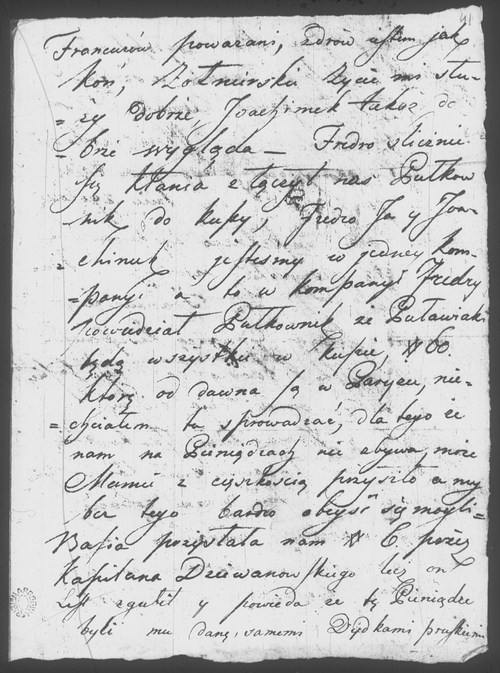 41
Francuzów poważani, zdrów iestem jak
koń, Żołnierskie życie mi słu-
=ży dobrze, Joachimek także do
=brze wygląda — Fredro ślicznie
się kłania złączył nas Pułkow
nik do kupy, Fredro Ja y Joa-
=chimek jesteśmy w jedney kom-
=panyi a to w kompanyi Fredry
powiedział Pułkownik że Puławiaki
będą wszystkie w kupie, # 60.
które od dawna są w Paryżu, nie-
=chciałem tu sprowadzać, dla tego że
nam na Pieniądzach nie zbywa, może
Mamie z ciężkością przyszło a my
bez tego bardzo obeyść się mogli-
Basia przysłała nam # 6 przez
Kapitana Dziewanowskiego lecz on
list zgubił y powieda że te Pieniądze
były mu dane, samemi Dydkami pruskiemi